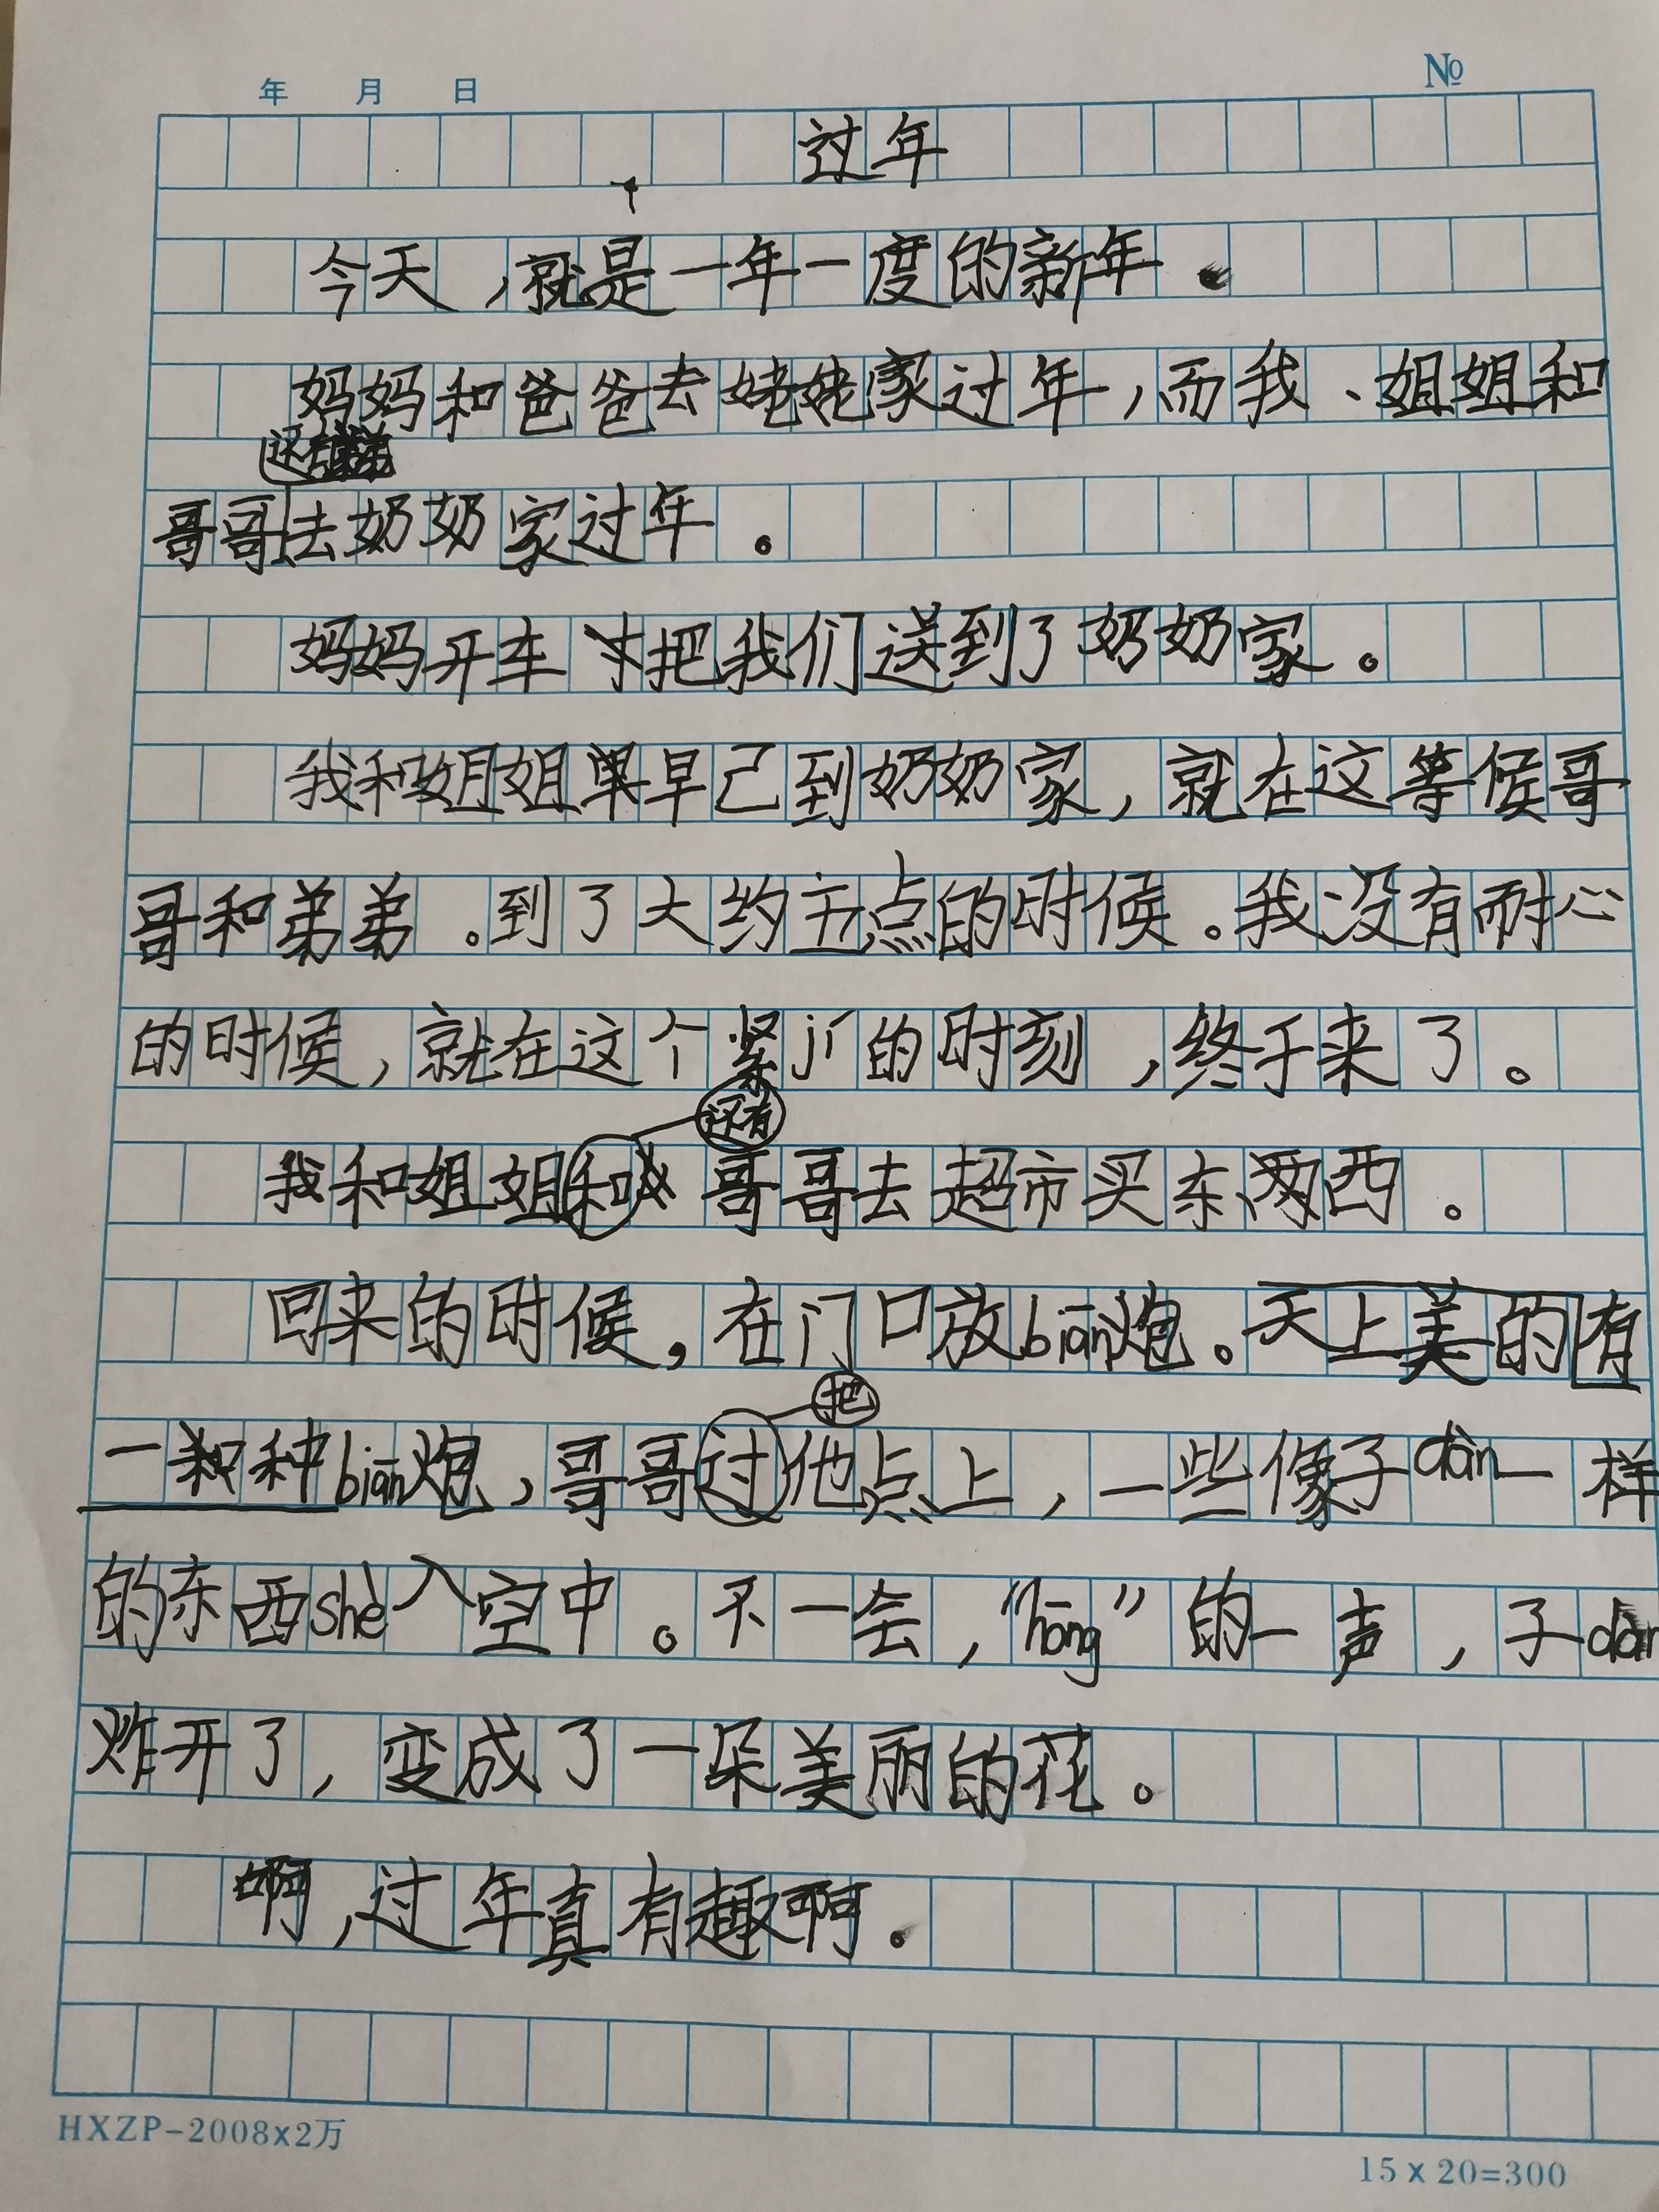 年 月 日 №
过年
今天，就是一年一度的新年。
妈妈和爸爸去姥姥家过年，而我、姐姐和
还有
哥哥去奶奶家过年。
妈妈开车 把我们送到了奶奶家。
我和姐姐早早己到奶奶家，就在这等候哥
哥和弟弟。到了大约五点的时候。我没有耐心
的时候，就在这个紧jí的时刻，终于来了。
还有
我和姐姐和 哥哥去超市买东西。
回来的时候，在门口放biān炮。天上美的有
把
一种biān炮，哥哥过他点上，一些像子dàn一样
的东西shè入空中。不一会，“hōng”的一声，子dàn
炸开了，变成了一朵美丽的花。
啊，过年真有趣啊。
HXZP-2008x2万
15x20=300